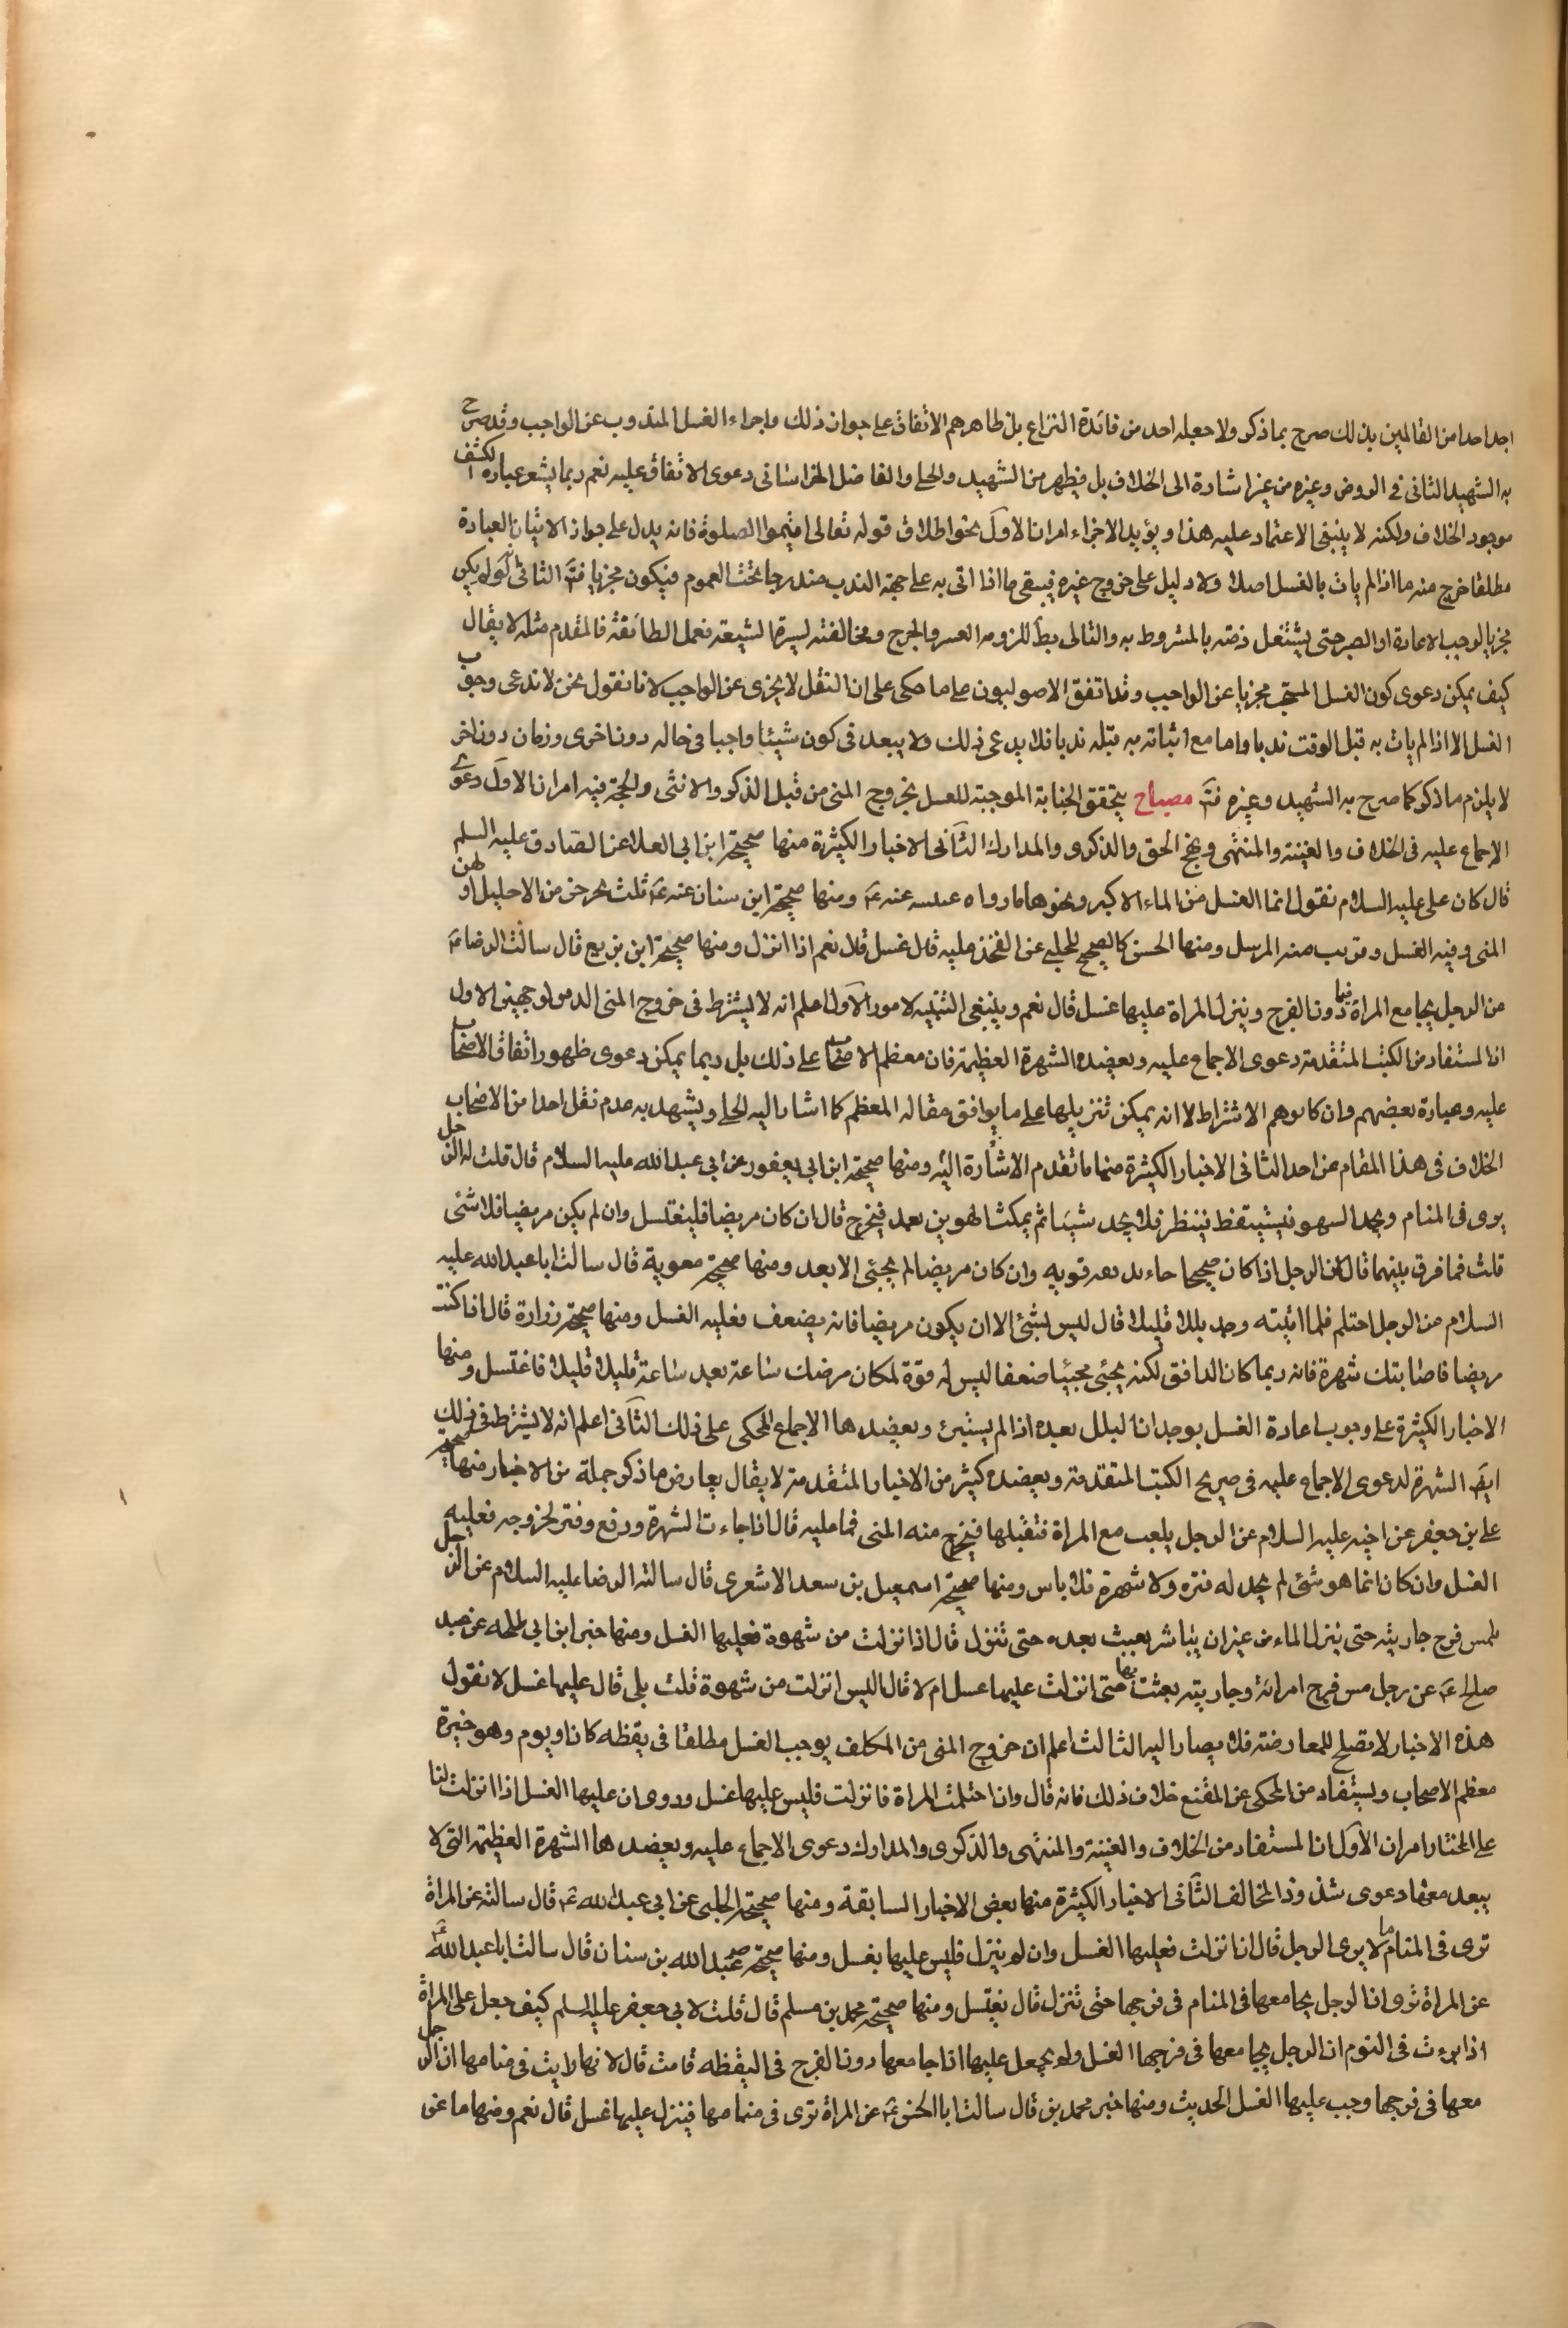 اجد احدا من القائلين بذلك صرح بما ذكر ولا جعله احد من فائدة النزاع بل ظاهرهم الاتفاق على جواز ذلك واجزاء الغسل المندوب عن الواجب وقد صرح
به الشهيد الثانى فى الروض وغيره من غير اشارة الى الخلاف بل يظهر من الشهيد والحلى والفاضل الخراسانى دعوى الاتفاق عليه نعم ربما يشعر عبارة الكشف
موجود الخلاف ولكنه لا ينبغى الاعتماد عليه هذا ويؤيد الاجزاء امران الاول نحو اطلاق قوله تعالى اقيموا الصلوة فانه يدل على جواز الاتيان بالعبادة
مطلقا خرج منه ما اذا لم يات بالغسل اصلا ولا دليل على خروج غيره فيبقى ما اذا اتى به على جهة الندب مندرجا تحت العموم فيكون مجزيا فتَ الثانى انه لو لم يكن
مجزيا لوجب الاعادة او الصبر حتى يشتغل ذمته بالمشروط به والتالى بط للزومه العسر والحرج ومخالفته لسيرة الشيعة فعمل الطائفة فالمقدم مثله لا يقال
كيف يمكن دعوى كون الغسل المستحب مجزيا عن الواجب وقد اتفق الاصوليون على ما حكى على ان النفل لا يجزى عن الواجب لانا نقول نحن لا ندعى وجوب
الغسل الا اذا لم يات به قبل الوقت ندبا واما مع اتيانه به قبله ندبا فلا يدعى ذلك ولا يبعد فى كون شيئا واجبا فى حاله دون اخرى وزمان دون اخر
لا يلزم ما ذكر كما صرح به الشهيد وغيره فتَ مصباح يتحقق الجنابة الموجبة للغسل بخروج المنى من قبل الذكر والانثى والحجة فيه امران الاول دعوى
الاجماع عليه فى الخلاف والغنية والمنتهى ونهج الحق والذكرى والمدارك الثانى الاخبار الكثيرة منها صحيحة ابن ابى العلا عن الصادق عليه السلم
قال كان على عليه السلام يقول انما الغسل من الماء الاكبر ونحوها ما رواه عنبسه عنه ع ومنها صحيحة ابن سنان عنه ع ثلث يخرجن من الاحليل او لهن
المنى وفيه الغسل وقريب منه المرسل ومنها الحسن كالصحيح للحلبى عن المفخذ عليه قال غسل قال نعم اذا انزل ومنها صحيحة ابن بزيع قال سالت الرضا ع
من الرجل يجامع المراة فيما دون الفرج وينزل المراة عليها غسل قال نعم وينبغى التنبيه لامور الاول اعلم انه لا يشترط فى خروج المنى الدمو لوجهين الاول
ان المستفاد من الكتب المتقدمة دعوى الاجماع عليه ويعضده الشهرة العظيمة فان معظم الاصحاب على ذلك بل ربما يمكن دعوى ظهور اتفاق الاصحاب
عليه وعبارة بعضهم وان كانوهم الاشتراط الا انه يمكن تنزيلها على ما يوافق مقاله المعظم كما اشار اليه الحلى ويشهد به عدم نقل احد من الاصحاب
الخلاف فى هذا المقام عن احد الثانى الاخبار الكثيرة منها ما تقدم الاشارة اليه ومنها صحيحة ابن ابى يعفور عن ابى عبد الله عليه السلام قال قلت له الرجل
يرى فى المنام ويجد الشهوة فيستيقظ فينظر فلا يجد شيئا ثم يمكث الهوين بعد فيخرج قال ان كان مريضا فليغتسل وان لم يكن مريضا فلا شئ
قلت فما فرق بينهما قال لان الرجل اذا كان صحيحا جاء بدفعة قوية وان كان مريضا لم يجئ الا بعد ومنها صحيحة معوية قال سالت ابا عبد الله عليه
السلام عن الرجل احتلم فلما انتبه وجد بللا قليلا قال ليس بشئ الا ان يكون مريضا فانه يضعف فعليه الغسل ومنها صحيحة زرارة قال اذا كنت
مريضا فاصابتك شهرة فانه ربما كان الدافق لكنه يجئ مجيئا ضعفا ليس له قوة لمكان مرضك ساعة بعد ساعة قليلا قليلا فاغتسل ومنها
الاخبار الكثيرة على وجوب اعادة الغسل بوجدان البلل بعده اذا لم يستبرئ ويعضدها الاجماع المحكى على ذلك الثانى اعلم انه لا يشترط فى ذلك
ايض الشهرة لدعوى الاجماع عليه فى صريح الكتب المتقدمة ويعضده كثير من الاخبار المتقدمة لا يقال يعارض ما ذكر جملة من الاخبار منها صحيحة
على بن جعفر عن اخيه عليه السلام عن الرجل يلعب مع المراة فتقبلها فيخرج منه المنى فما عليه قال اذا جاءت الشهرة ودفع وفتر لخروجه فعليه
الغسل وان كان انما هو شئ لم يجد له فتره ولا شهرة فلا باس ومنها صحيحة اسمعيل بن سعد الاشعرى قال سالته الرضا عليه السلام عن الرجل
يلمس فرج جاريته حتى ينزل الماء من غير ان يباشر يعبث بعده حتى تنزل قال اذا نزلت من شهوة فعليها الغسل ومنها خبر ابن ابى طلحه عن عبد
صالح ع عن رجل مس فرج امراته وجاريته يعبث بها حتى انزلت عليها غسل ام لا قال اليس انزلت من شهوة قلت بلى قال عليها غسل لا نقول
هذه الاخبار لا تصلح للمعارضة فلا يصار اليه الثالث اعلم ان خروج المنى من المكلف يوجب الغسل مطلقا فى يقظه كان او نوم وهو خيرة
معظم الاصحاب ويستفاد من المحكى عن المقنع خلاف ذلك فانه قال وان احتلمت المراة فانزلت فليس عليها غسل وروى ان عليها الغسل اذا انزلت لنا
على المختار امران الاول ان المستفاد من الخلاف والغنية والمنتهى والذكرى والمدارك دعوى الاجماع عليه ويعضدها الشهرة العظيمة التى لا
يبعد معها دعوى شذوذ المخالف الثانى الاخبار الكثيرة منها بعض الاخبار السابقة ومنها صحيحة الحلبى عن ابى عبد الله ع قال سالته عن المراة
ترى فى المنام ما لا يرى الرجل قال ان انزلت فعليها الغسل وان لم ينزل فليس عليها بغسل ومنها صحيحة عبد الله بن سنان قال سالت ابا عبد الله ع
عن المراة ترى ان الرجل يجامعها فى المنام فى فرجها حتى تنزل قال يغتسل ومنها صحيحة محمد بن مسلم قال قلت لابى جعفر عليه السلم كيف جعل على المراة
اذا رءت فى النوم ان الرجل يجامعها فى فرجها الغسل ولم يجعل عليها اذا جامعها دون الفرج فى اليقظه فامنت قال لانها رايت فى منامها ان الرجل
معها فى فرجها وجب عليها الغسل الحديث ومنها خبر محمد بن قال سالت ابا الحسن ع عن المراة ترى فى منامها فينزل عليها غسل قال نعم ومنها ما عن